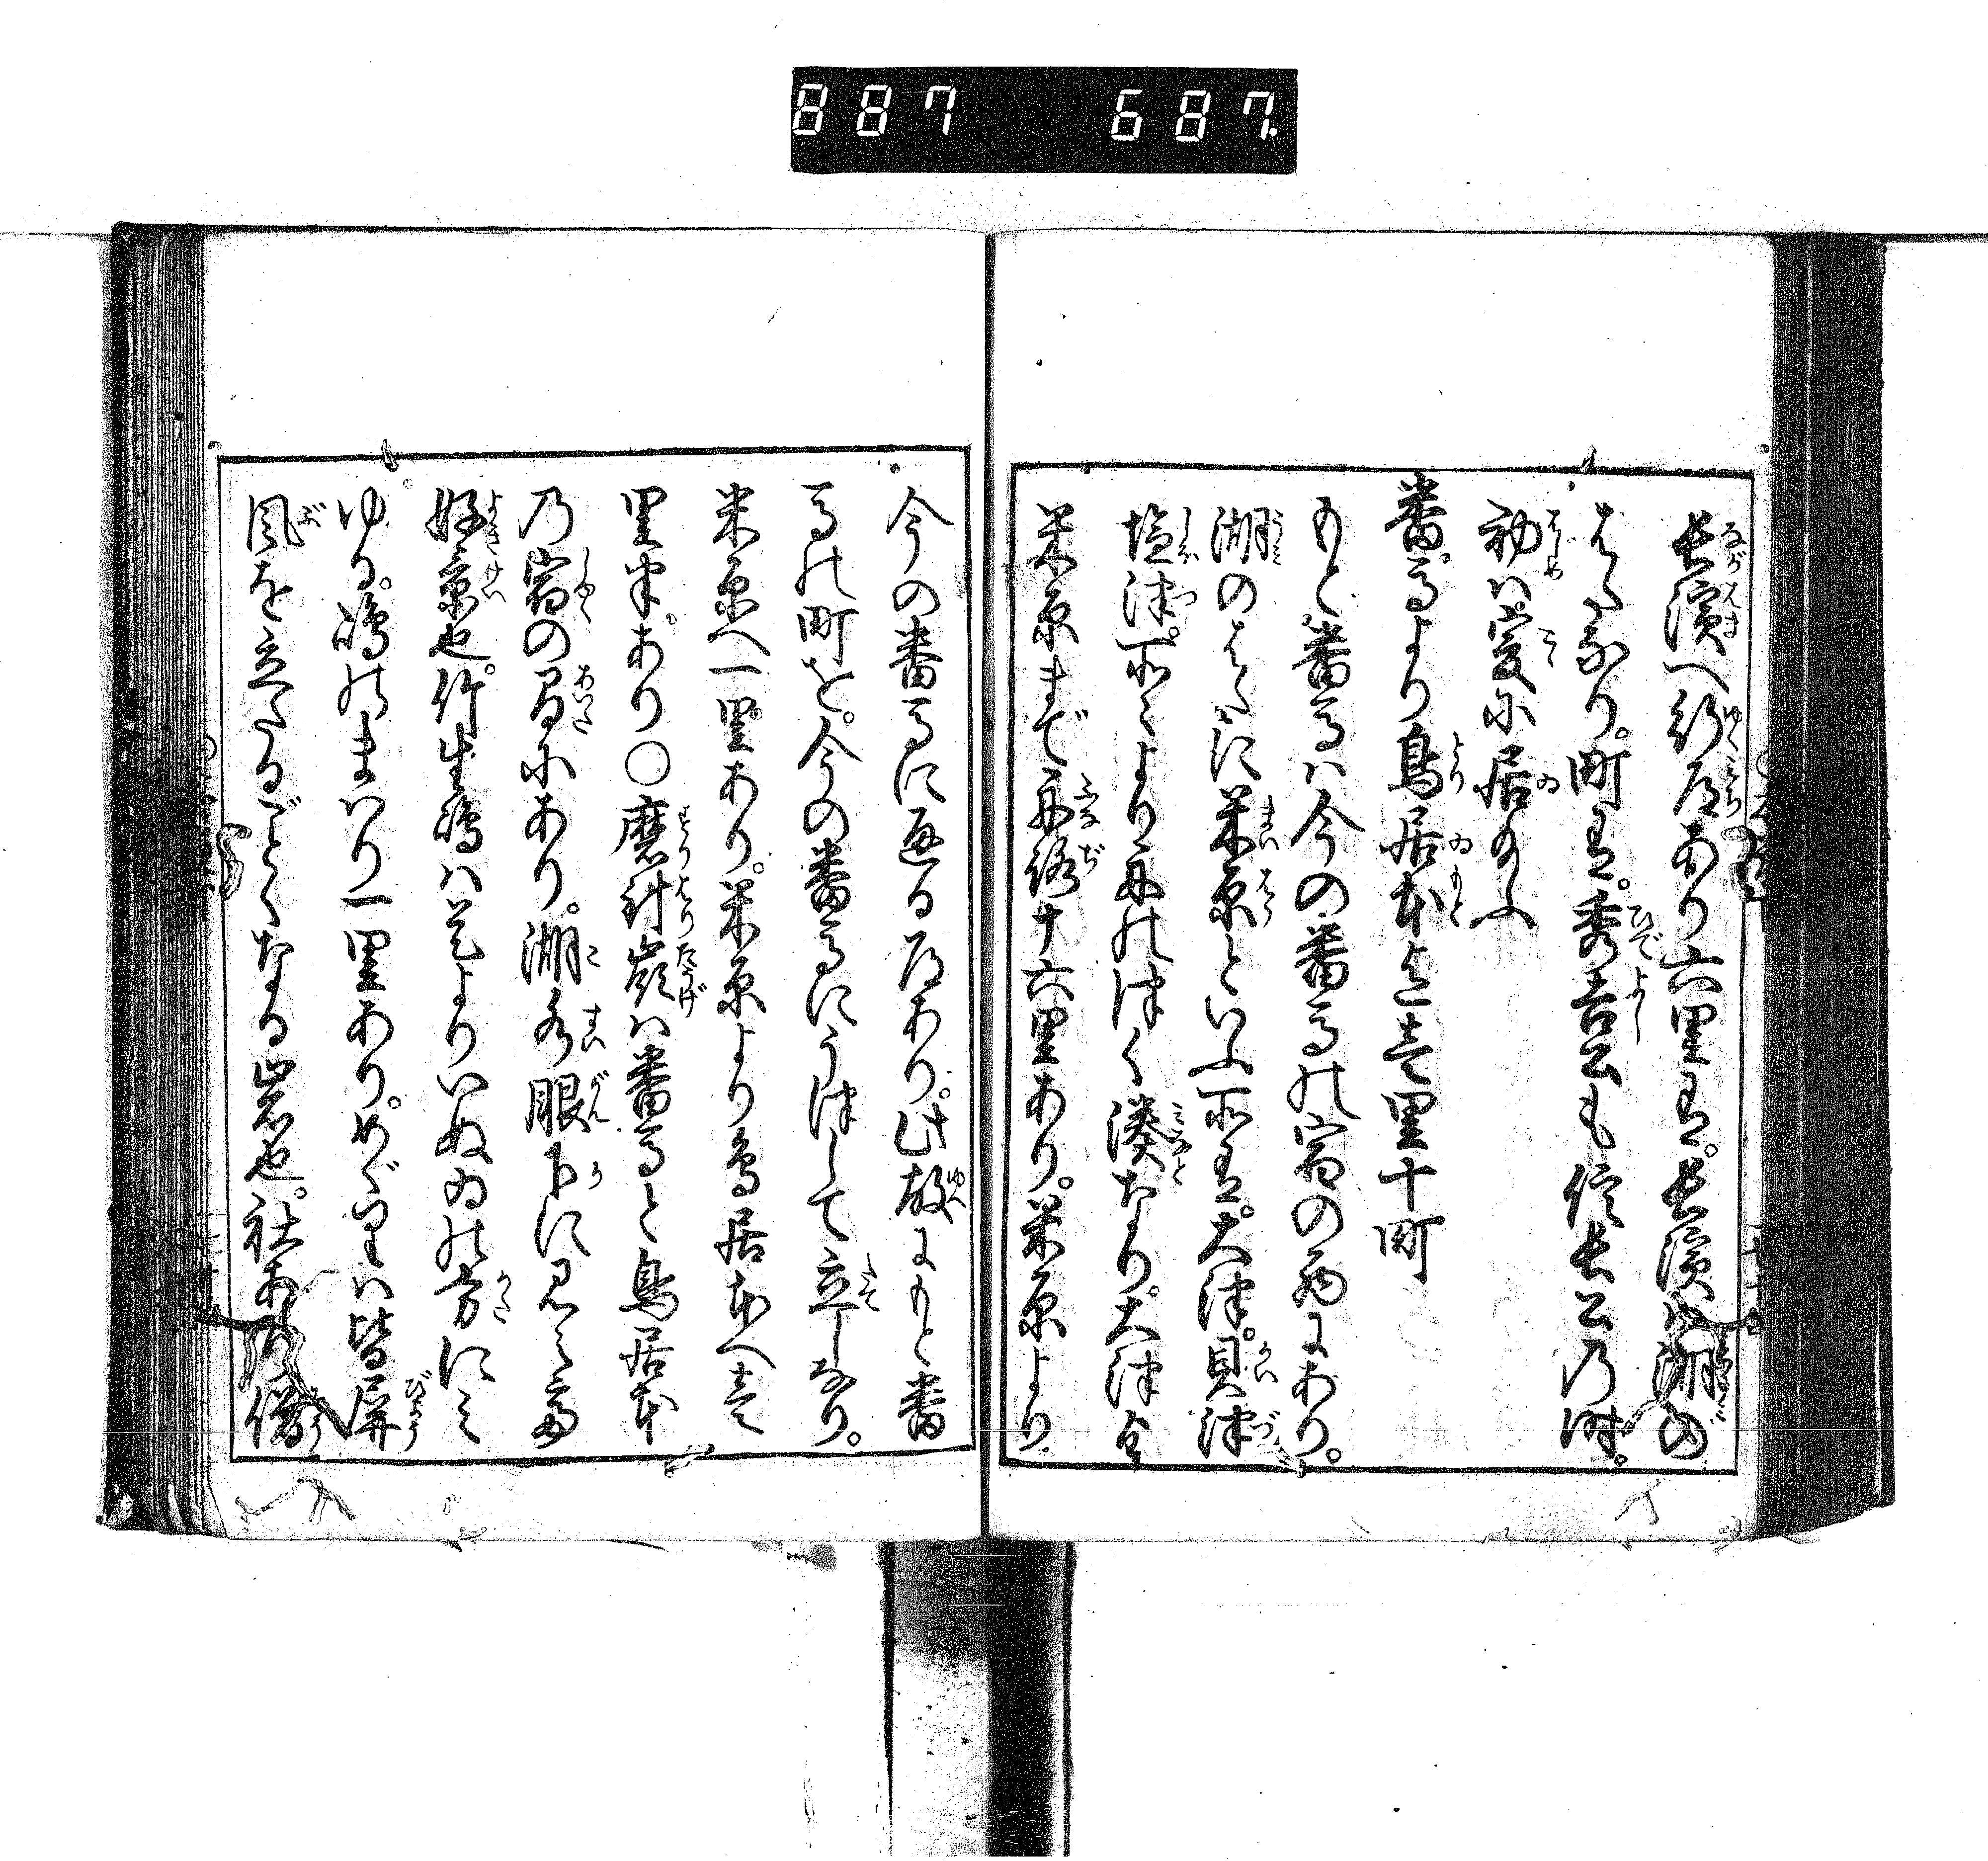 887 687.
長濱へ行道あり六里有。長濱ハ湖の
はたなり。町有。秀吉公も信長公の時。
初ハ爰に居給ふ
番場より鳥居本迄壹里十町
もと番場ハ今の番場の宿の西にあり。
湖のはたに米原といふ所有。大津。貝津
塩津。所々より舟の津く湊なり。大津より
米原まで舟路十六里あり。米原より
今の番場に通る道あり。此故にもと番
場の町を。今の番場にうつして立しなり。
米原へ一里あり。米原より鳥居本へ壹
里半。あり〇磨針嶺ハ番場と鳥居本
乃宿の間にあり。湖水眼下に見えて
好景也。竹生嶋ハ是よりいぬゐの方にミ
ゆる。嶋のまハり一里あり。めぐりハ皆屏
風を立たるごとくなる岩也。社あり僧